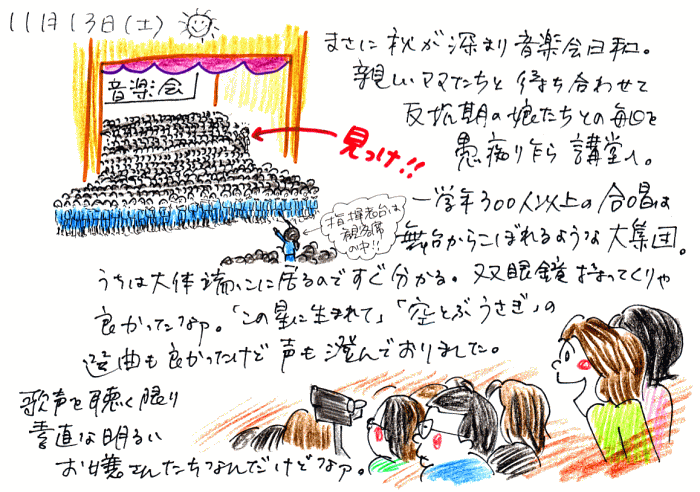 11月13日(土)
まさに秋が深まり音楽会日和。
親しいママたちと待ち合わせて
反抗期の娘たちとの毎日を
愚痴り乍ら講堂へ。
音楽会
見っけ!!
一学年300人以上の合唱は
指揮者台は
観客席
の中!!
舞台からこぼれるような大集団。
うちは大体端っこに居るのですぐ分かる。双眼鏡持ってくりゃ
良かったなァ。「この星に生まれて」「空とぶうさぎ」の
選曲も良かったけど声も澄んでおりました。
歌声を聴く限り
素直な明るい
お嬢さんたちなんだけどなァ。